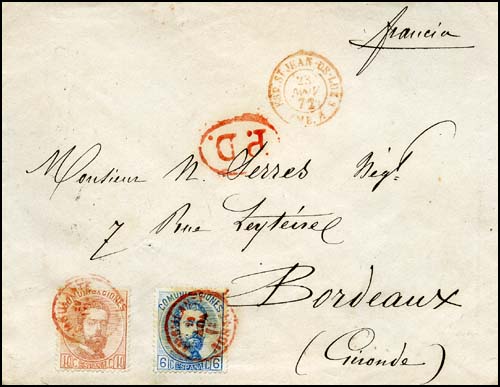 francia
ESP. ST JEAN-DE-LUZ
23
NOV
72
P.D.
Monsieur N. Serres Négt
7 Rue Leyteire
Bordeaux
(Gironde)
COMUNICACIONES
10 ESPAÑA 10
COMUNICACIONES
6 ESPAÑA 6